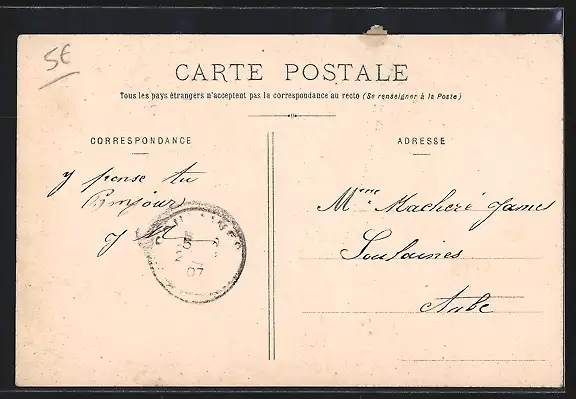 5E
CARTE POSTALE
Tous les pays étrangers n'acceptent pas la correspondance au recto (Se renseigner à la Poste)
CORRESPONDANCE
ADRESSE
y pense tu
Bonjour
Mme Macheré James
Soulaines
Aube
07